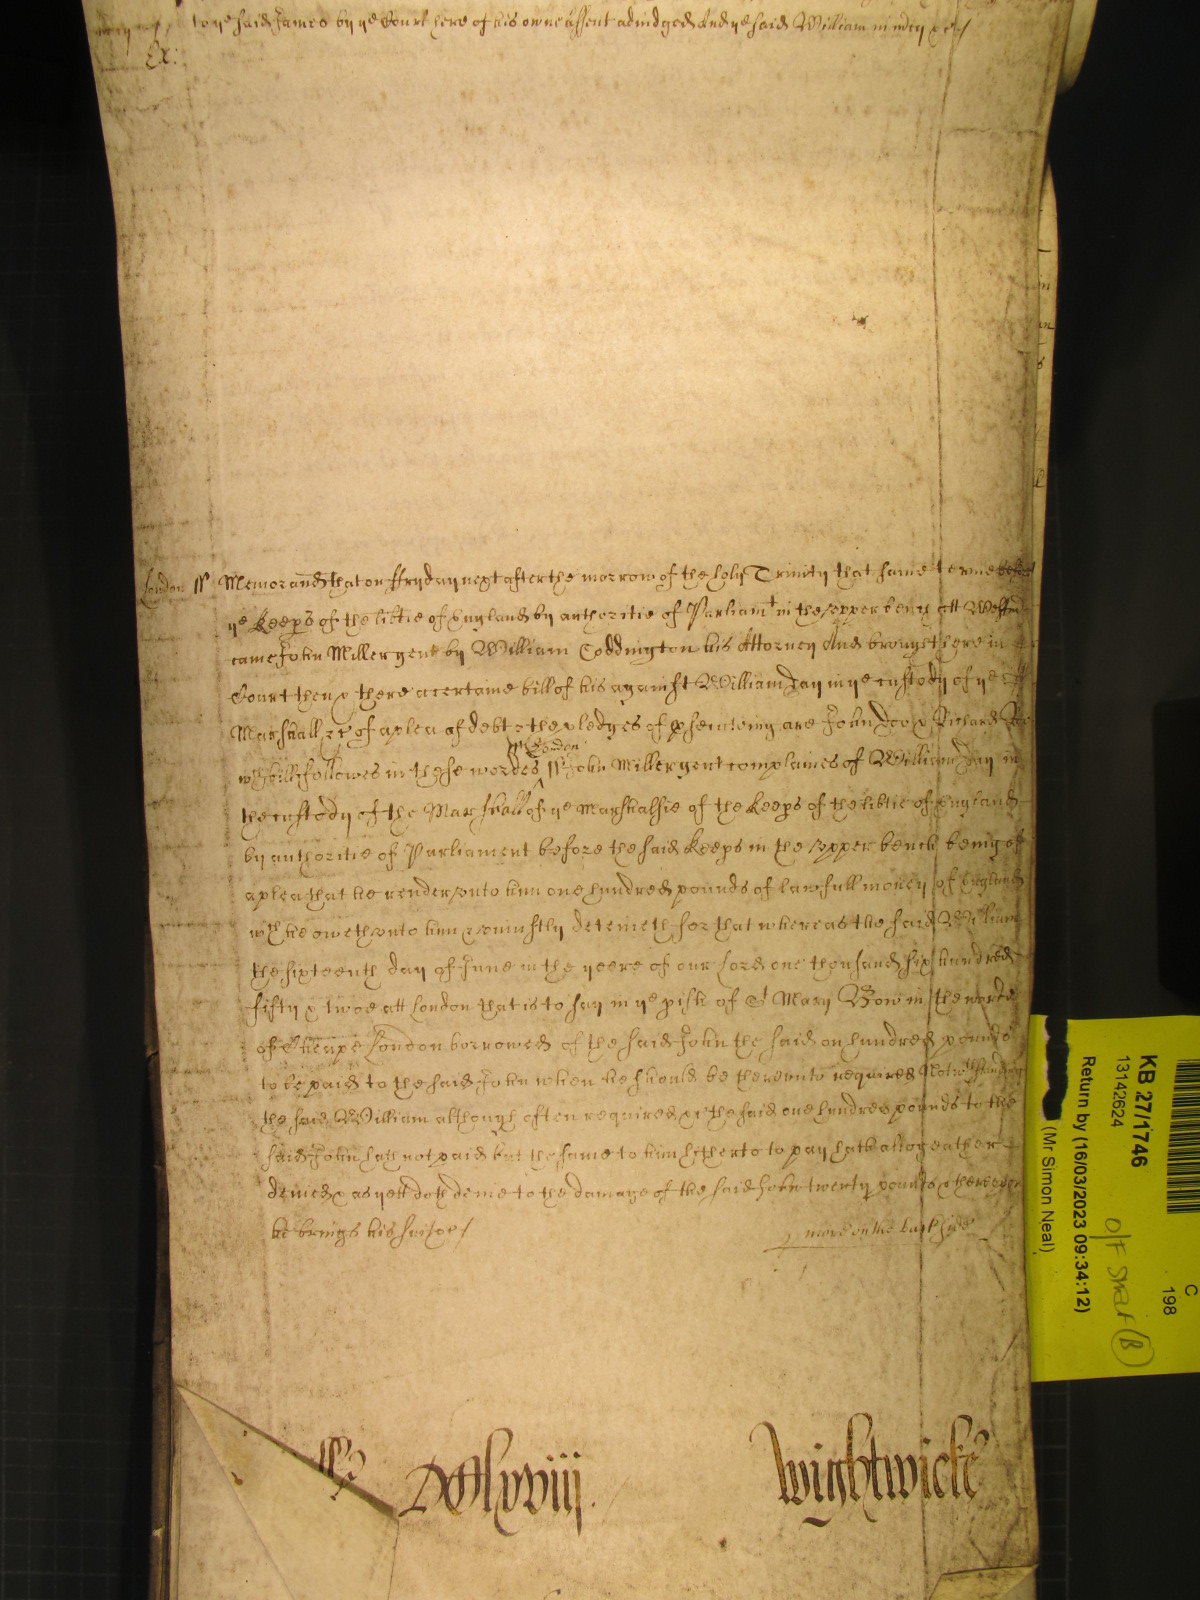 to ye said James by ye Court here of his owne assent adiudged And ye said William in mcy &c/
Ex:
London ss Memorand that on ffryday next after the morrow of the holy Trinity that same terme before
ye Keeps of the libtie of England by authoritie of Parliamt in the vpper bench att Westm
came John Miller gent by William Coddington his Attorney And brought here in
Court then & there a certaine bill of his against William Day in ye custody of ye
Marshall &c of a plea of debt & the pledges of psecuteing are John Doo & Richard Roo
wch bill followes in these wordes ss London ss John Miller gent complaines of William Day in
the custody of the Marshall of ye Marshalsie of the Keeps of the libtie of England
by authoritie of Parliament before the said Keeps in the vpper bench being of
a plea that he render vnto him one hundred pounds of lawfull money of England
wch he oweth vnto him & vniustly deteineth for that whereas the said William
the sixteenth day of June in the yeere of our Lord one thousand six hundred
fifty & twoe att London that is to say in ye pish of St Mary Bow in the warde
of Cheape London borrowed of the said John the said on hundred pounds
to be paid to the said John when he should be therevnto required Notwthstanding
the said William although often required &c the said one hundred pounds to the
said John hath not paid but the same to him hitherto to pay hath altogeather
denied & as yett doth denie to the damage of the said John twenty pounds & therevpon
he brings his suite &c/
more on the backside
DCClxviij.
Wightwicke
KB 27/1746
13142624
Return by (16/03/2023 09:34:12)
(Mr Simon Neal)
C
198
O/F Shelf (B)